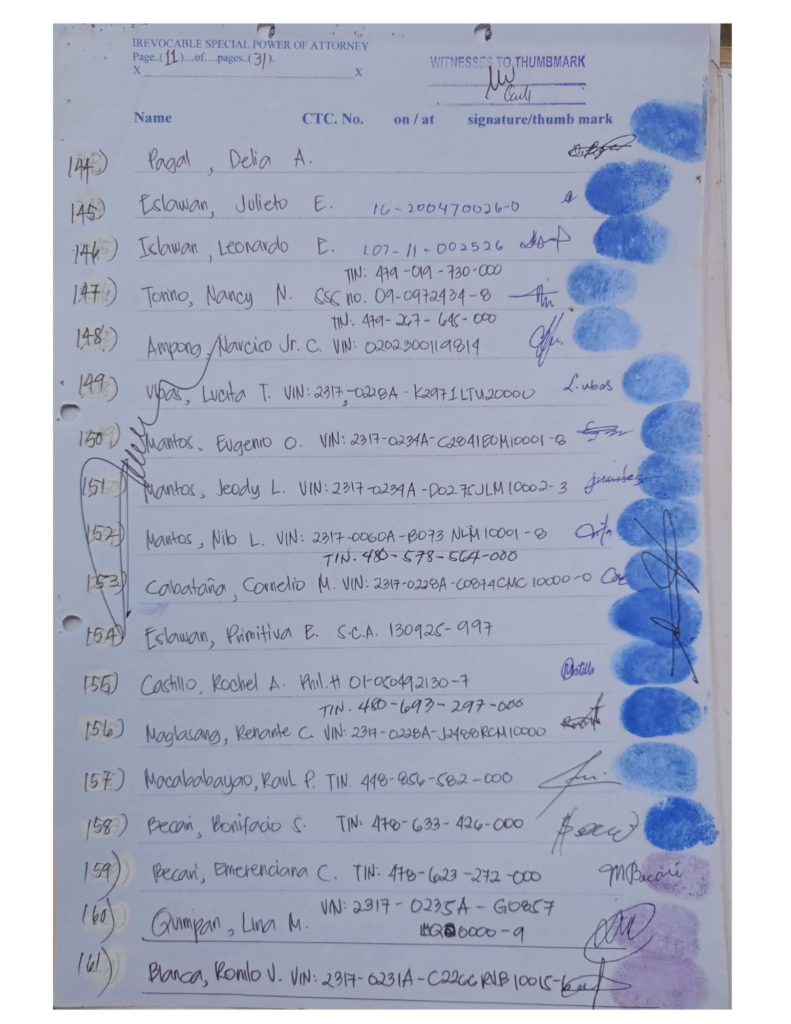 IREVOCABLE SPECIAL POWER OF ATTORNEY
Page..(11)...of....pages..(31).
X X
WITNESSES TO THUMBMARK
Name CTC. No. on / at signature/thumb mark
144) Pagal, Delia A.
145) Eslawan, Julieto E. 16-200470026-0
146) Islawan, Leonardo E. L07-11-002526
TIN: 479-019-730-000
147) Torino, Nancy N. SSS no. 09-0972434-8
TIN: 479-267-645-000
148) Ampong, Narciso Jr. C. VIN: 0202300119814
149) Ubas, Lucita T. VIN: 2317-0228A-K2971LTU20000 L. ubas
150) Mantos, Eugenio O. VIN: 2317-0234A-C2841EOM10001-8
151) Mantos, Jeody L. VIN: 2317-0234A-D0275JLM10002-3
152) Mantos, Nilo L. VIN: 2317-0060A-B073NLM10001-8
TIN. 480-578-564-000
153) Cabataña, Cornelio M. VIN: 2317-0228A-C0874CMC10000-0
154) Eslawan, Primitiva E. S.C.A. 130925-997
155) Castillo, Rochel A. Phil.H 01-050492130-7
TIN. 480-693-297-000
156) Maglasang, Renante C. VIN: 2317-0228A-J2488RCM10000
157) Macababayao, Raul P. TIN 448-856-582-000
158) Becari, Bonifacio S. TIN: 478-633-426-000
159) Becari, Emerenciana C. TIN: 478-623-272-000 MBecari
VIN: 2317-0235A-G0857
160) Quimpan, Lina M. 0000-9
161) Blanca, Romlo V. VIN: 2317-0231A-C2266RVB10015-